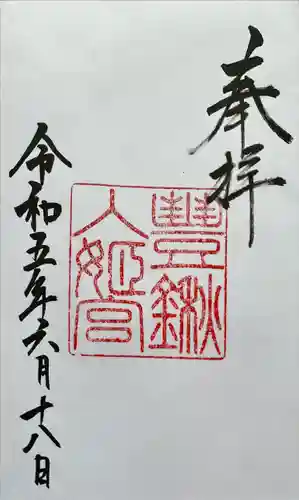 奉拝
豐鍬
入姫宮
令和五年六月十八日